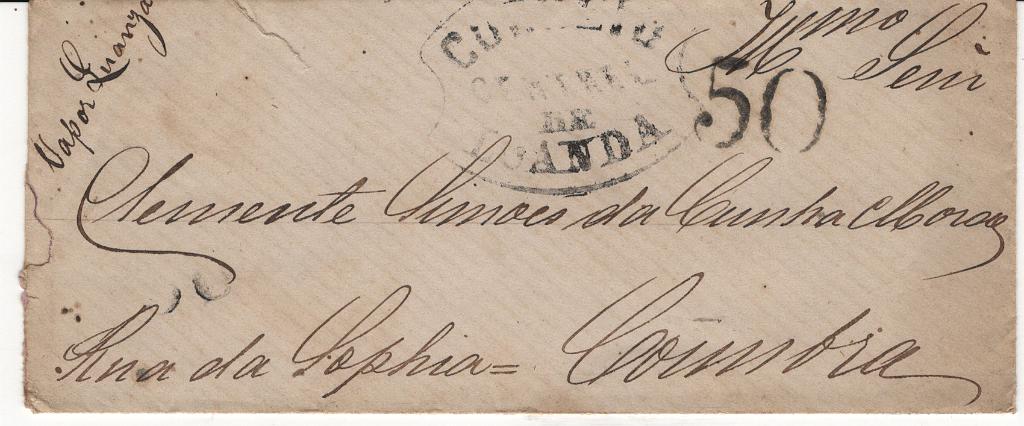 Vapor Luanga
CORREIO
CENTRAL
DE
LOANDA
50
Illmo
Senr
Clemente Simões da Cunha Moraes
Rua da Sophia = Coimbra